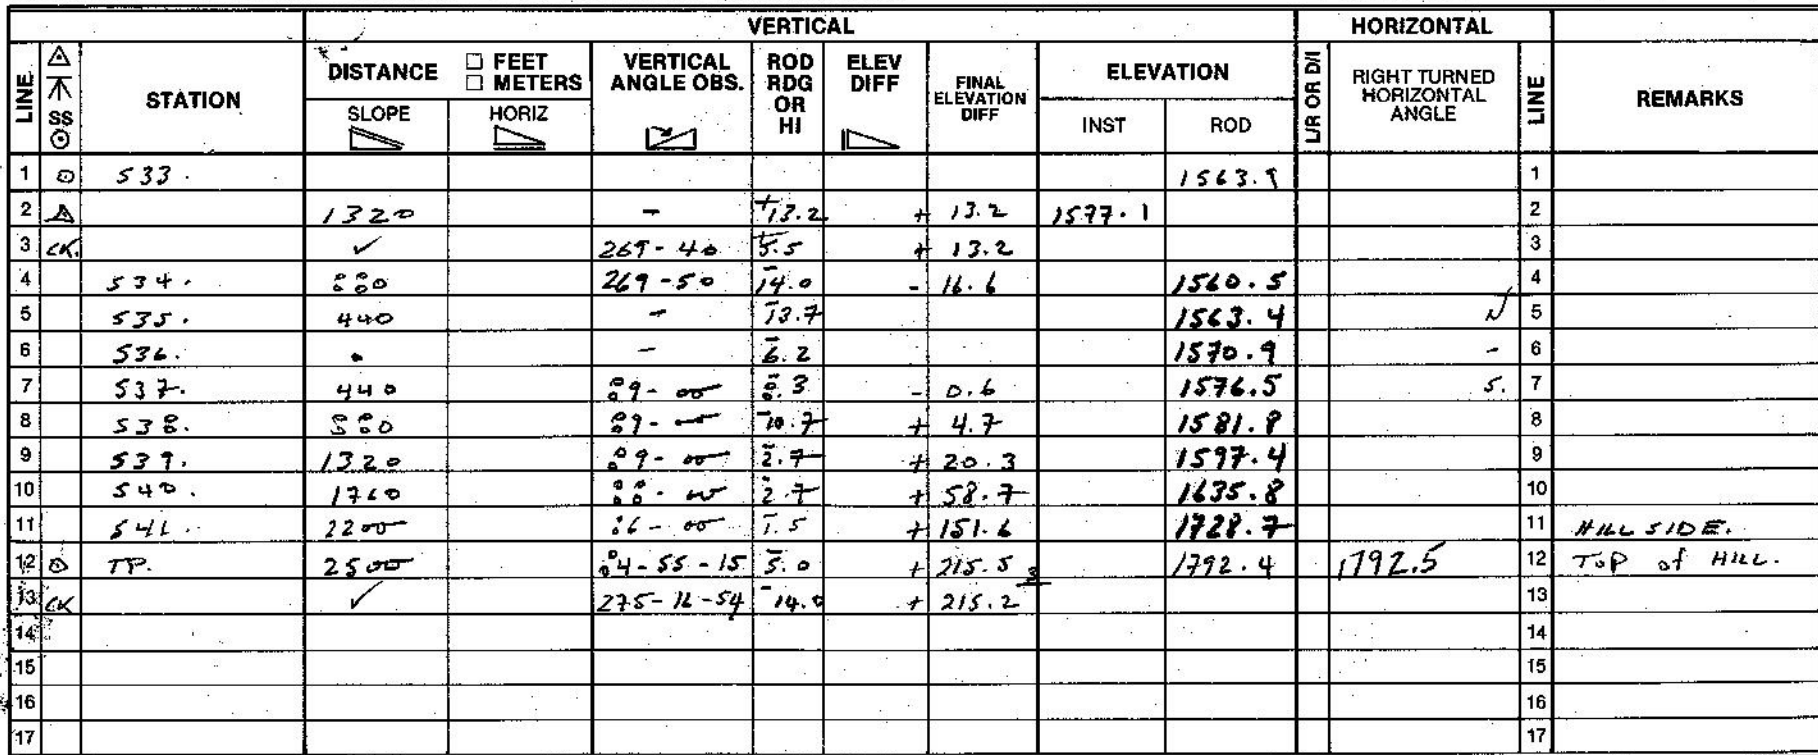 VERTICAL HORIZONTAL
LINE SS STATION DISTANCE □ FEET □ METERS SLOPE HORIZ VERTICAL ANGLE OBS. ROD RDG OR HI ELEV DIFF FINAL ELEVATION DIFF ELEVATION INST ROD L/R OR D/I RIGHT TURNED HORIZONTAL ANGLE LINE REMARKS
1 533. 1563.9 1
2 1320 - +13.2 + 13.2 1577.1 2
3 CK. ✓ 269-40 5.5 + 13.2 3
4 534. 880 269-50 -14.0 - 16.6 1560.5 4
5 535. 440 - -13.7 1563.4 N 5
6 536. - -6.2 1570.9 - 6
7 537. 440 89-00 8.3 - 0.6 1576.5 S. 7
8 538. 880 89-00 -10.7 + 4.7 1581.8 8
9 539. 1320 89-00 -2.7 + 20.3 1597.4 9
10 540. 1760 88-00 -2.7 + 58.7 1635.8 10
11 541. 2200 86-00 -1.5 + 151.6 1728.7 11 HILL SIDE.
12 TP. 2500 84-55-15 -5.0 + 215.5 1792.4 1792.5 12 TOP of HILL.
13 CK ✓ 275-16-54 -14.0 + 215.2 13
14 14
15 15
16 16
17 17